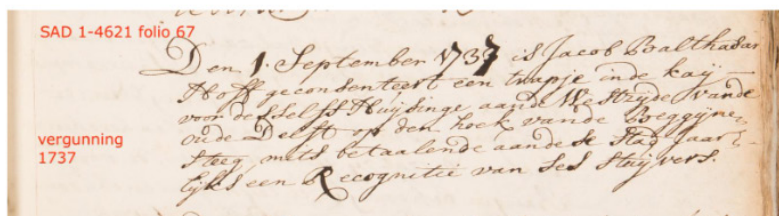 SAD 1-4621 folio 67
Den 1. September 1737 is Jacob Balthasar
Hoff geconsenteert een trapje inde kay
voor desselfs Huijsinge aande Westzijde vande
oude Delft op den hoek vande Beggijne
steeg mits betaalende aan dese Stad jaar
lijks een Recognitie van ses stuijvers.
vergunning
1737